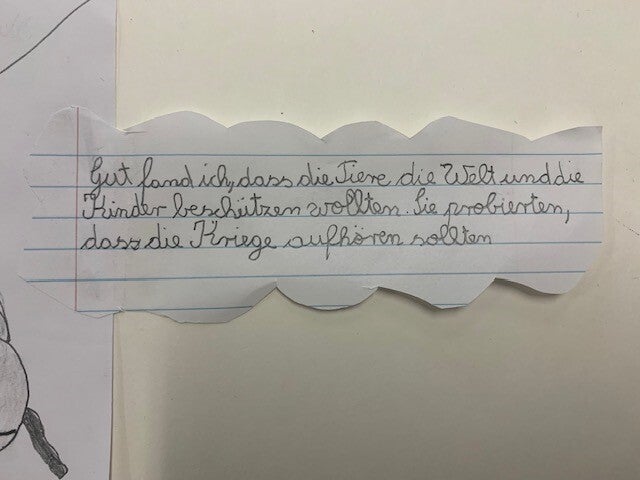 Gut fand ich, dass die Tiere die Welt und die
Kinder beschützen wollten. Sie probierten,
dass die Kriege aufhören sollten